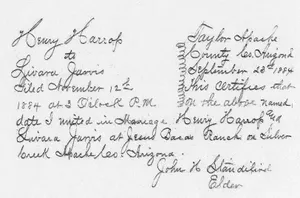 Henry Harrop
to
Livara Jarvis
Filed November 12th
1884 at 2 O'clock P.M.
Taylor Apache
County Co. Arizona
September 23rd 1884
This Certifies that
on the above named
date I united in Marriage Henry Harrop and
Livara Jarvis at Jesus Bacas Ranch on Silver
Creek Apache Co. Arizona.
John H Standifird
Elder